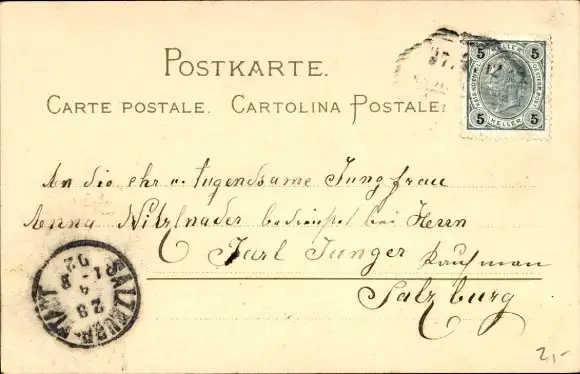 POSTKARTE.
CARTE POSTALE. CARTOLINA POSTALE
5 HELLER 5
5 HELLER 5
An die ehr u. tugendsame Jungfrau
Anna Nitzlnader bedienstet bei Herrn
Karl Junger Kaufman
Salzburg
SALZBURG-STADT
28 4
02
2,-